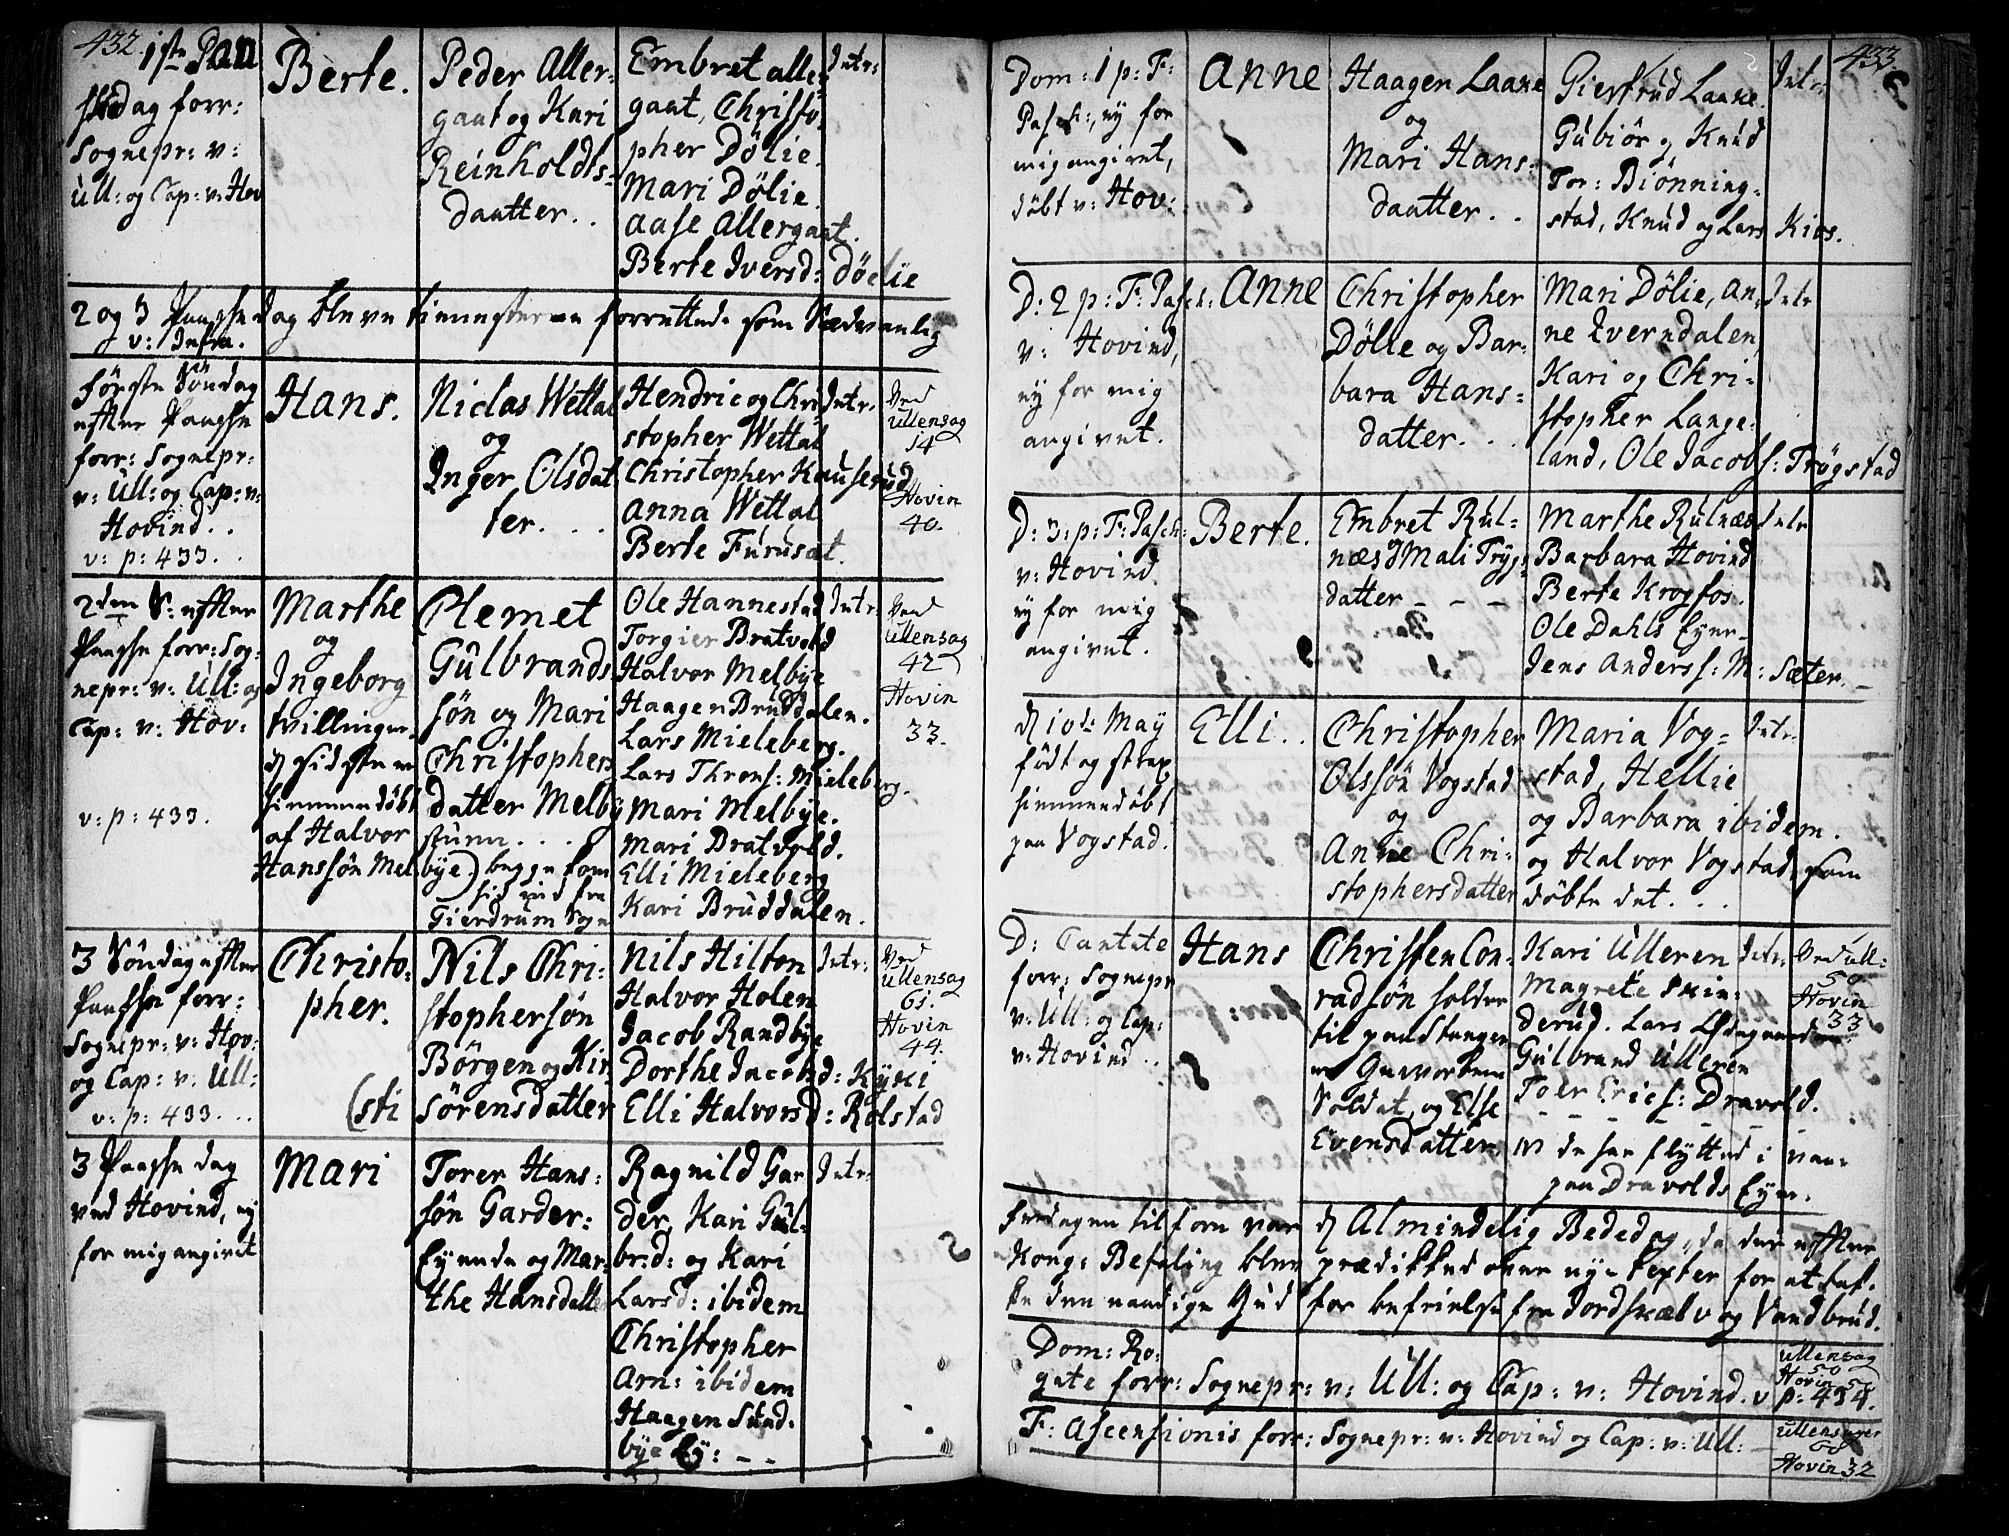 432.
1ste Paa
skedag forr:
Sognepr: v:
Ull: og Cap: v: Hov
Berte.
Peder Aller-
gaat og Kari
Reinholdts-
daatter. .
Embret aller-
gaat, Christo-
pher Dölie.
Mari Dölie.
Aase Allergaat.
Berte Iversd: Döelie
Intr:
2 og 3 Paaske dag bleve tienesterne forrettede som Sædvanlig
v: Infra.
Förste Söndag
efter Paaske
forr: Sognepr:
v: Ull: og Cap: v:
Hovind. .
v: p: 433. .
Hans.
Niclas Wettal
og
Inger Olsdat
ter. . .
Hendric og Chri
stopher Wettal
Christopher Knuserud
Anna Wettal
Berte Furusat.
Intr.
Ved
Ullensag
14
Hovin
40.
2den S: efter
Paaske forr: Sog-
nepr: v: Ull: og
Cap: v: Hov:
v: p: 433.
Marthe
og
Ingeborg
tvillinger.
d sidste er
hiemmedöbt
af Halvor
Hanssön Melbye)
Clemet
Gulbrands
sön og Mari
Christophers
datter Melby
stuen. . . .
begge kom
hid ind fra
Gierdrum Sogn
Ole Hannestad
Torgier Bratvold
Halvor Melbye
Haagen Bruddalen.
Lars Mieleberg.
Lars Throns: Mieleberg.
Mari Melbye.
Mari Bratvold.
Elli Mieleberg
Kari Bruddalen.
Intr:
Ved
Ullensag
42
Hovin
33.
3 Söndag efter
Paaske forr:
Sognepr: v: Hov:
og Cap: v: Ull:
v: p: 433. . .
Christo-
pher.
Nils Chri-
stophersön
Börgen og Kir
(sti Sörensdatter
Nils Hilton
Halvor Holen
Jacob Randbye
Dorthe Jacobsd: Kyxi
Elli Halvorsd: Rolstad
Intr:
Ved
Ullensag
61.
Hovin
44.
3 Paaske dag
ved Hovind, ey
for mig angivet
Mari
Torer Hans-
sön Garder-
Eyende og Mar-
the Hansdatter
Ragnild Gar
der, Kari Gul-
br:d: og Kari
Larsd: ibidem
Christopher
Arn: ibidem
Haagen Stad-
bye Ey: - -
Intr:
433.
Dom: 1 p: F:
Pasch:, ey for
mig angivet,
döbt v: Hov:
Anne
Haagen Laake
og
Mari Hans-
daatter. .
Giertrud Laake.
Gubiör og Knud
Tor: Biönning-
stad, Knud og Lars Kios.
Intr:
D: 2 p: F: Pasch:
v: Hovind,
ey for mig
angivet.
Anne
Christopher
Dölie og Bar-
bara Hans-
datter. . .
Mari Dölie, An-
ne Everndalen,
Kari og Chri-
stopher Lange-
land, Ole Jacobs: Trögstad
Intr
D: 3: p: F: Pasch:
v: Hovind.
ey for mig
angivet.
Berte.
Embret Rul-
næs og Mali Tryg-
datter - - -
Marthe Rulnæs
Barbara Hovind
Berte Krogfos.
Ole Dahls Eyer-
Jens Anderss: M: Sæter. -
Intr
d 10de May
födt og strax
hiemmedöbt
paa Vogstad.
Elli. .
Christopher
Olssön Vogstad
og
Anne Chri-
stophersdatter
Maria Vog-
stad, Hellie
og Barbara ibidem.
og Halvor Vogstad, som
döbte det. . .
Intr.
D: Cantate
forr: Sognepr
v: Ull: og Cap:
v: Hovind. .
Hans
Christen Con-
radsön holder
til paa Stangen
er Gevorben
Soldat, og Else
Evensdatter
Kari Ulleren
Magrete Skin-
derud. Lars
Gulbrand Ulleren
Toer Erics: Dravold.
de har flytted i vaar
paa Dravolds Eyer.
Intr:
Ved Ull:
50
Hovin
33
Fredagen tilforn var d Almindelig Bededag, da der efter
Kong: Befaling blev prædikked over nye texter for at tak-
ke den naadige Gud for befrielse fra Jordskælv og Vandbrud.
Dom: Ro-
gate forr: Sognepr: v: Ull: og Cap: v: Hovind. v p: 434.
Ullensag
50
Hovin
F: Ascensionis forr: Sognepr: v: Hovind og Cap: v: Ull:
Hovin 32